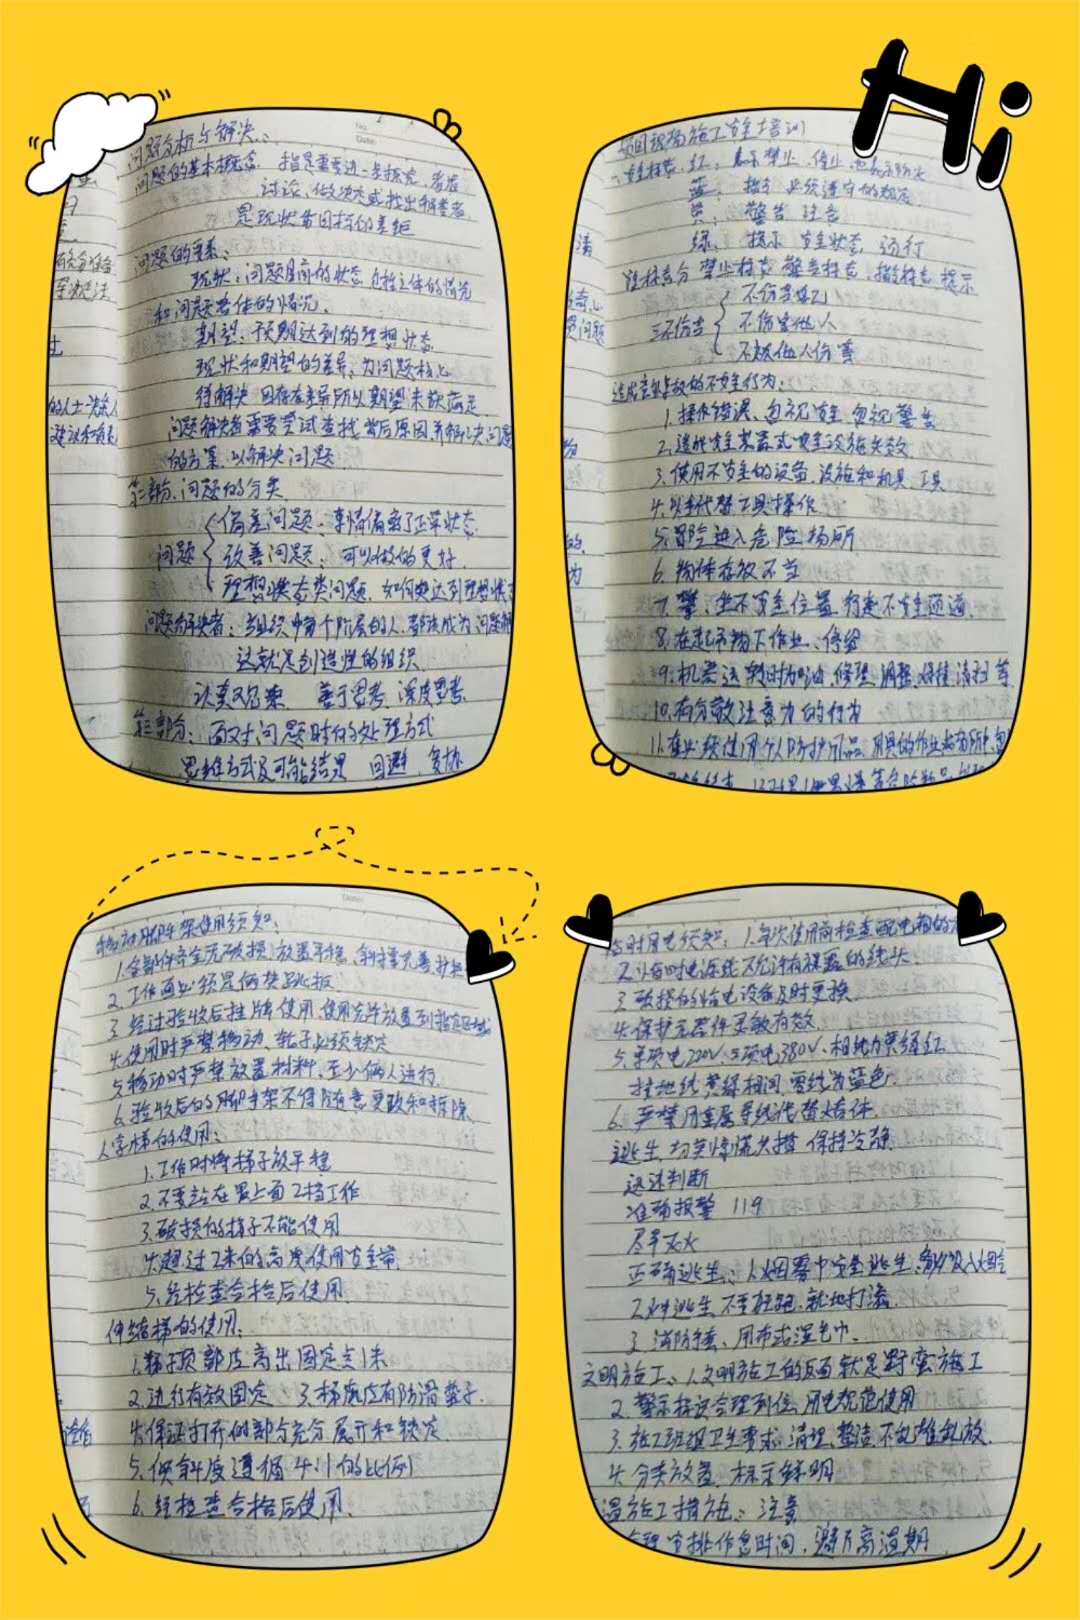 Hi
No.
Date.
问题分析与解决:
问题的基本概念: 指是需要进一步探究、考虑
讨论、做决定或找出科学者
是现状与目标的差距
问题的要素:
现状:问题目前的状态 包括主体的情况
和问题客体的情况.
期望:预期达到的理想状态
现状和期望的差异:为问题核心
待解决 因存在差异所以期望未获满足
问题解决者需要尝试查找背后原因,并解决问题
的方案,以解决问题.
第二部分.问题的分类
偏差问题:事情偏离了正常状态
问题 改善问题:可以做的更好
理想状态类问题.如何能达到理想状
问题解决者:当组织中每个阶层的人,都能成为问题解
这就是创造性的组织.
认真观察 善于思考 深度思考
第三部分:面对问题时的处理方式
思维方式及可能结果 回避 妥协
的人士决
建议和
项目现场施工安全培训
安全标志.红: 表示禁止、停止 也表示防火
蓝: 指令 必须遵守的规定
黄: 警告 注意
绿: 提示 安全状态 通行
标志分 禁止标志 警告标志 指令标志 提示
不伤害自己
三不伤害 不伤害他人
不被他人伤害
造成事故的不安全行为:
1.操作错误、忽视安全,忽视警告
2.造成安全装置失效
3.使用不安全的设备、设施和机具、工具
4.以手代替工具操作
5.冒险进入危险场所
6.物体存放不当
7.攀、坐不安全位置,行走不安全通道
8.在起吊物下作业、停留
9.机器运转时加油、修理、调整、焊接、清扫等
10.有分散注意力的行为
11.在必须使用个人防护用品、用具的作业或场所中,忽
移动脚手架使用须知:
1.全部件齐全无破损,放置平稳、斜撑完善,护栏
2.工作面必须是俩块跳板.
3.经过验收后挂牌使用,使用完毕放置到指定区域
4.使用时严禁移动、轮子必须锁定
5.移动时严禁放置材料,至少俩人进行.
6.验收后的脚手架不得随意更改和拆除.
人字梯的使用:
1.工作时将梯子放平稳
2.不要站在最上面2档工作
3.破损的梯子不能使用
4.超过2米的高度使用安全带.
5.经检查合格后使用.
伸缩梯的使用:
1.梯子顶部应高出固定点1米
2.进行有效固定 3.梯底应有防滑垫子.
4.保证打开的部分充分展开和锁定
5.倾斜度遵循4:1的比例
6.经检查合格后使用.
临时用电须知: 1.每次使用前检查配电箱的
2.临时电源线不允许有裸露的线头
3.破损的临电设备及时更换.
4.保护元器件灵敏有效
5.单项电220V、三项电380V、相线为黄绿红
接地线黄绿相间,零线为蓝色.
6.严禁用金属导线代替熔体
逃生.切莫惊慌失措 保持冷静
迅速判断
准确报警 119
尽早灭火
正确逃生: 1.烟雾中安全逃生,
2.火中逃生,不要狂跑,就地打滚
3.消防手套、用布或湿毛巾.
文明施工: 1.文明施工的反面就是野蛮施工
2.警示标识合理到位,用电规范使用
3.施工班组卫生要求,清理、整洁,不乱堆乱放.
4.分类放置.标示鲜明
温施工措施: 注意
合理安排作息时间,避开高温期